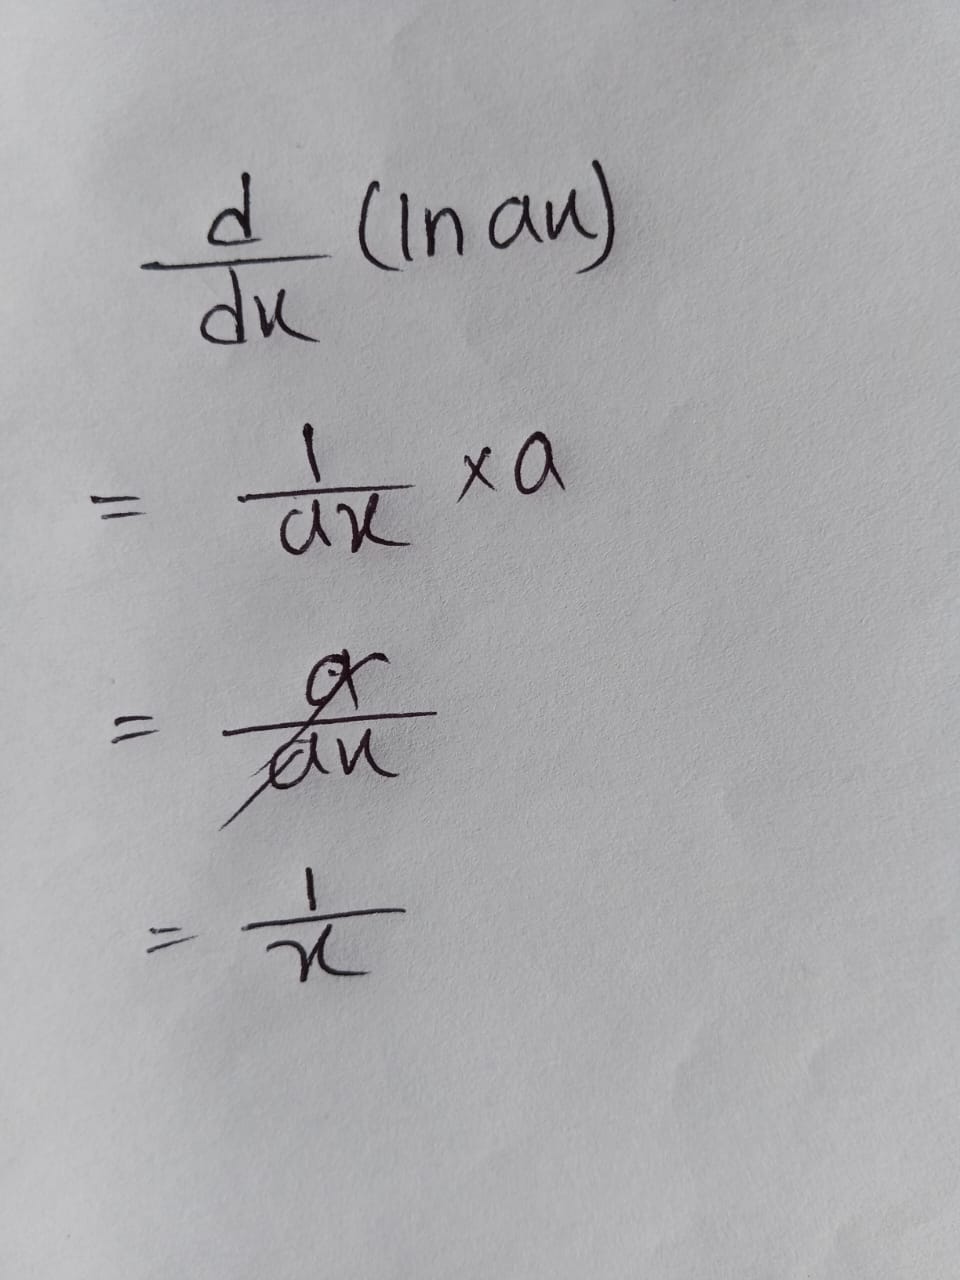 d/dx (ln ax)
= 1/ax × a
= a/ax
= 1/x